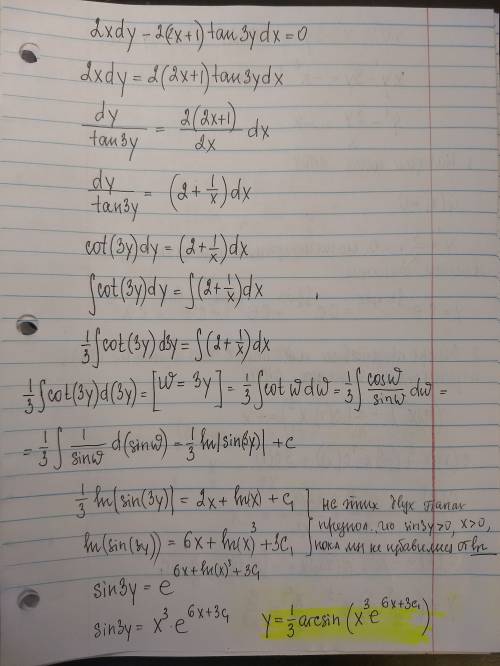 2xdy - 2(2x+1)tan3ydx=0
2xdy = 2(2x+1)tan3ydx
dy/tan3y = 2(2x+1)/2x dx
dy/tan3y = (2 + 1/x)dx
cot(3y)dy = (2+1/x)dx
∫cot(3y)dy = ∫(2+1/x)dx
1/3∫cot(3y)d3y = ∫(2+1/x)dx
1/3∫cot(3y)d(3y) = [w = 3y] = 1/3∫cot w dw = 1/3∫cosw/sinw dw =
= 1/3∫ 1/sinw d(sinw) = 1/3 ln|sin(3y)| + c
1/3 ln|sin(3y)| = 2x + ln(x) + c₁
на этих двух этапах
предпол. что sin3y>0, x>0,
пока мы не избавились от ln
ln(sin(3y)) = 6x + ln(x)³ + 3c₁
sin3y = e^(6x+ln(x)³+3c₁)
sin3y = x³·e^(6x+3c₁)
y = 1/3 arcsin(x³e^(6x+3c₁))